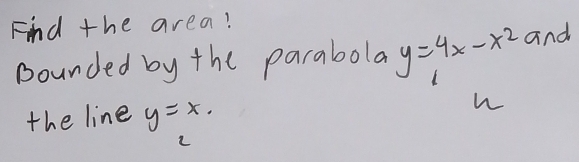 Find the area!
Bounded by the parabola y=4x-x² and
the line y=x.